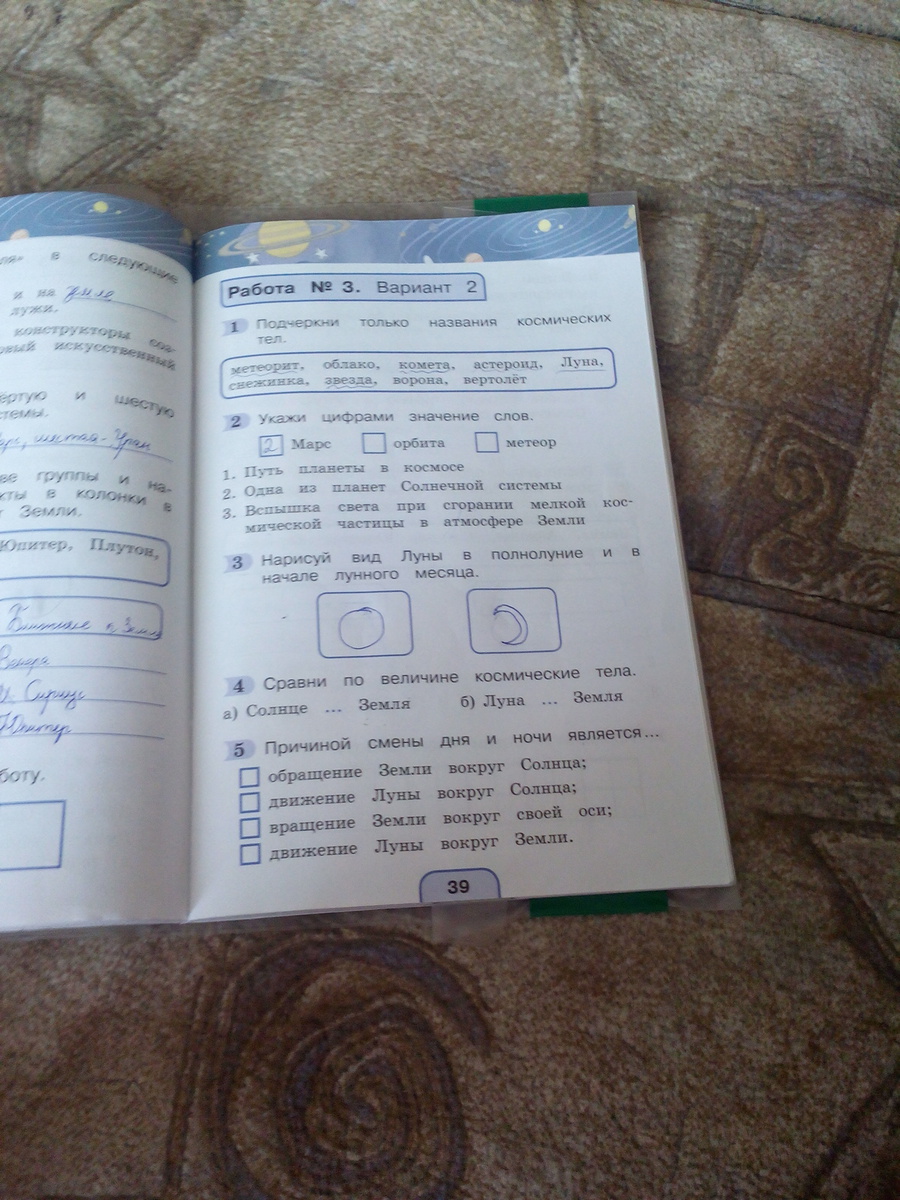 ля» в следующие
и на земле
лужи.
конструкторы соз-
овый искусственный
ертую и шестую
стемы.
шестая - Уран
ве группы и на-
кты в колонки в
т Земли.
Юпитер, Плутон,
Ближние к Земле
Венера
Сириус
Юпитер
боту.
Работа № 3. Вариант 2
1 Подчеркни только названия космических
тел.
метеорит, облако, комета, астероид, Луна,
снежинка, звезда, ворона, вертолёт
2 Укажи цифрами значение слов.
2 Марс орбита метеор
1. Путь планеты в космосе
2. Одна из планет Солнечной системы
3. Вспышка света при сгорании мелкой кос-
мической частицы в атмосфере Земли
3 Нарисуй вид Луны в полнолуние и в
начале лунного месяца.
4 Сравни по величине космические тела.
а) Солнце ... Земля б) Луна ... Земля
5 Причиной смены дня и ночи является...
обращение Земли вокруг Солнца;
движение Луны вокруг Солнца;
вращение Земли вокруг своей оси;
движение Луны вокруг Земли.
39